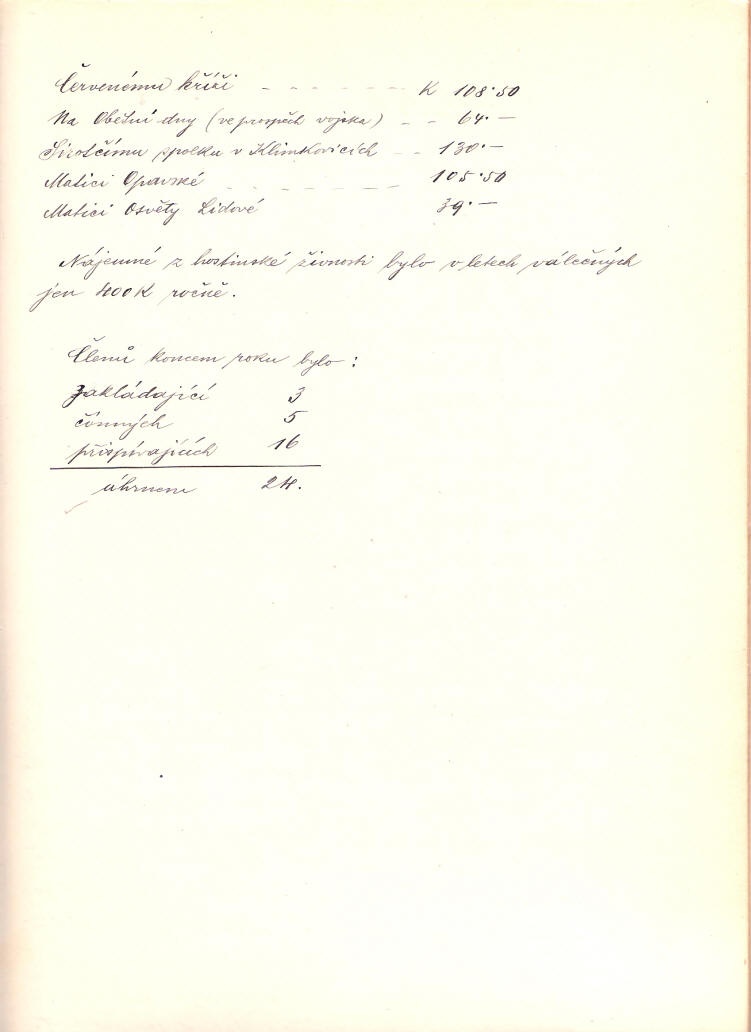 Červenému kříži - - - - - - K 108·50
Na Obětní dny (ve prospěch vojska) - - 64·—
Sirotčímu spolku v Klimkovicích - - 130·—
Matici Opavské - - - - - - 105·50
Matici Osvěty Lidové 39·—
Nájemné z hostinské živnosti bylo v letech válečných
jen 400K ročně.
Členů koncem roku bylo:
zakládající 3
činných 5
přispívajících 16
úhrnem 24.